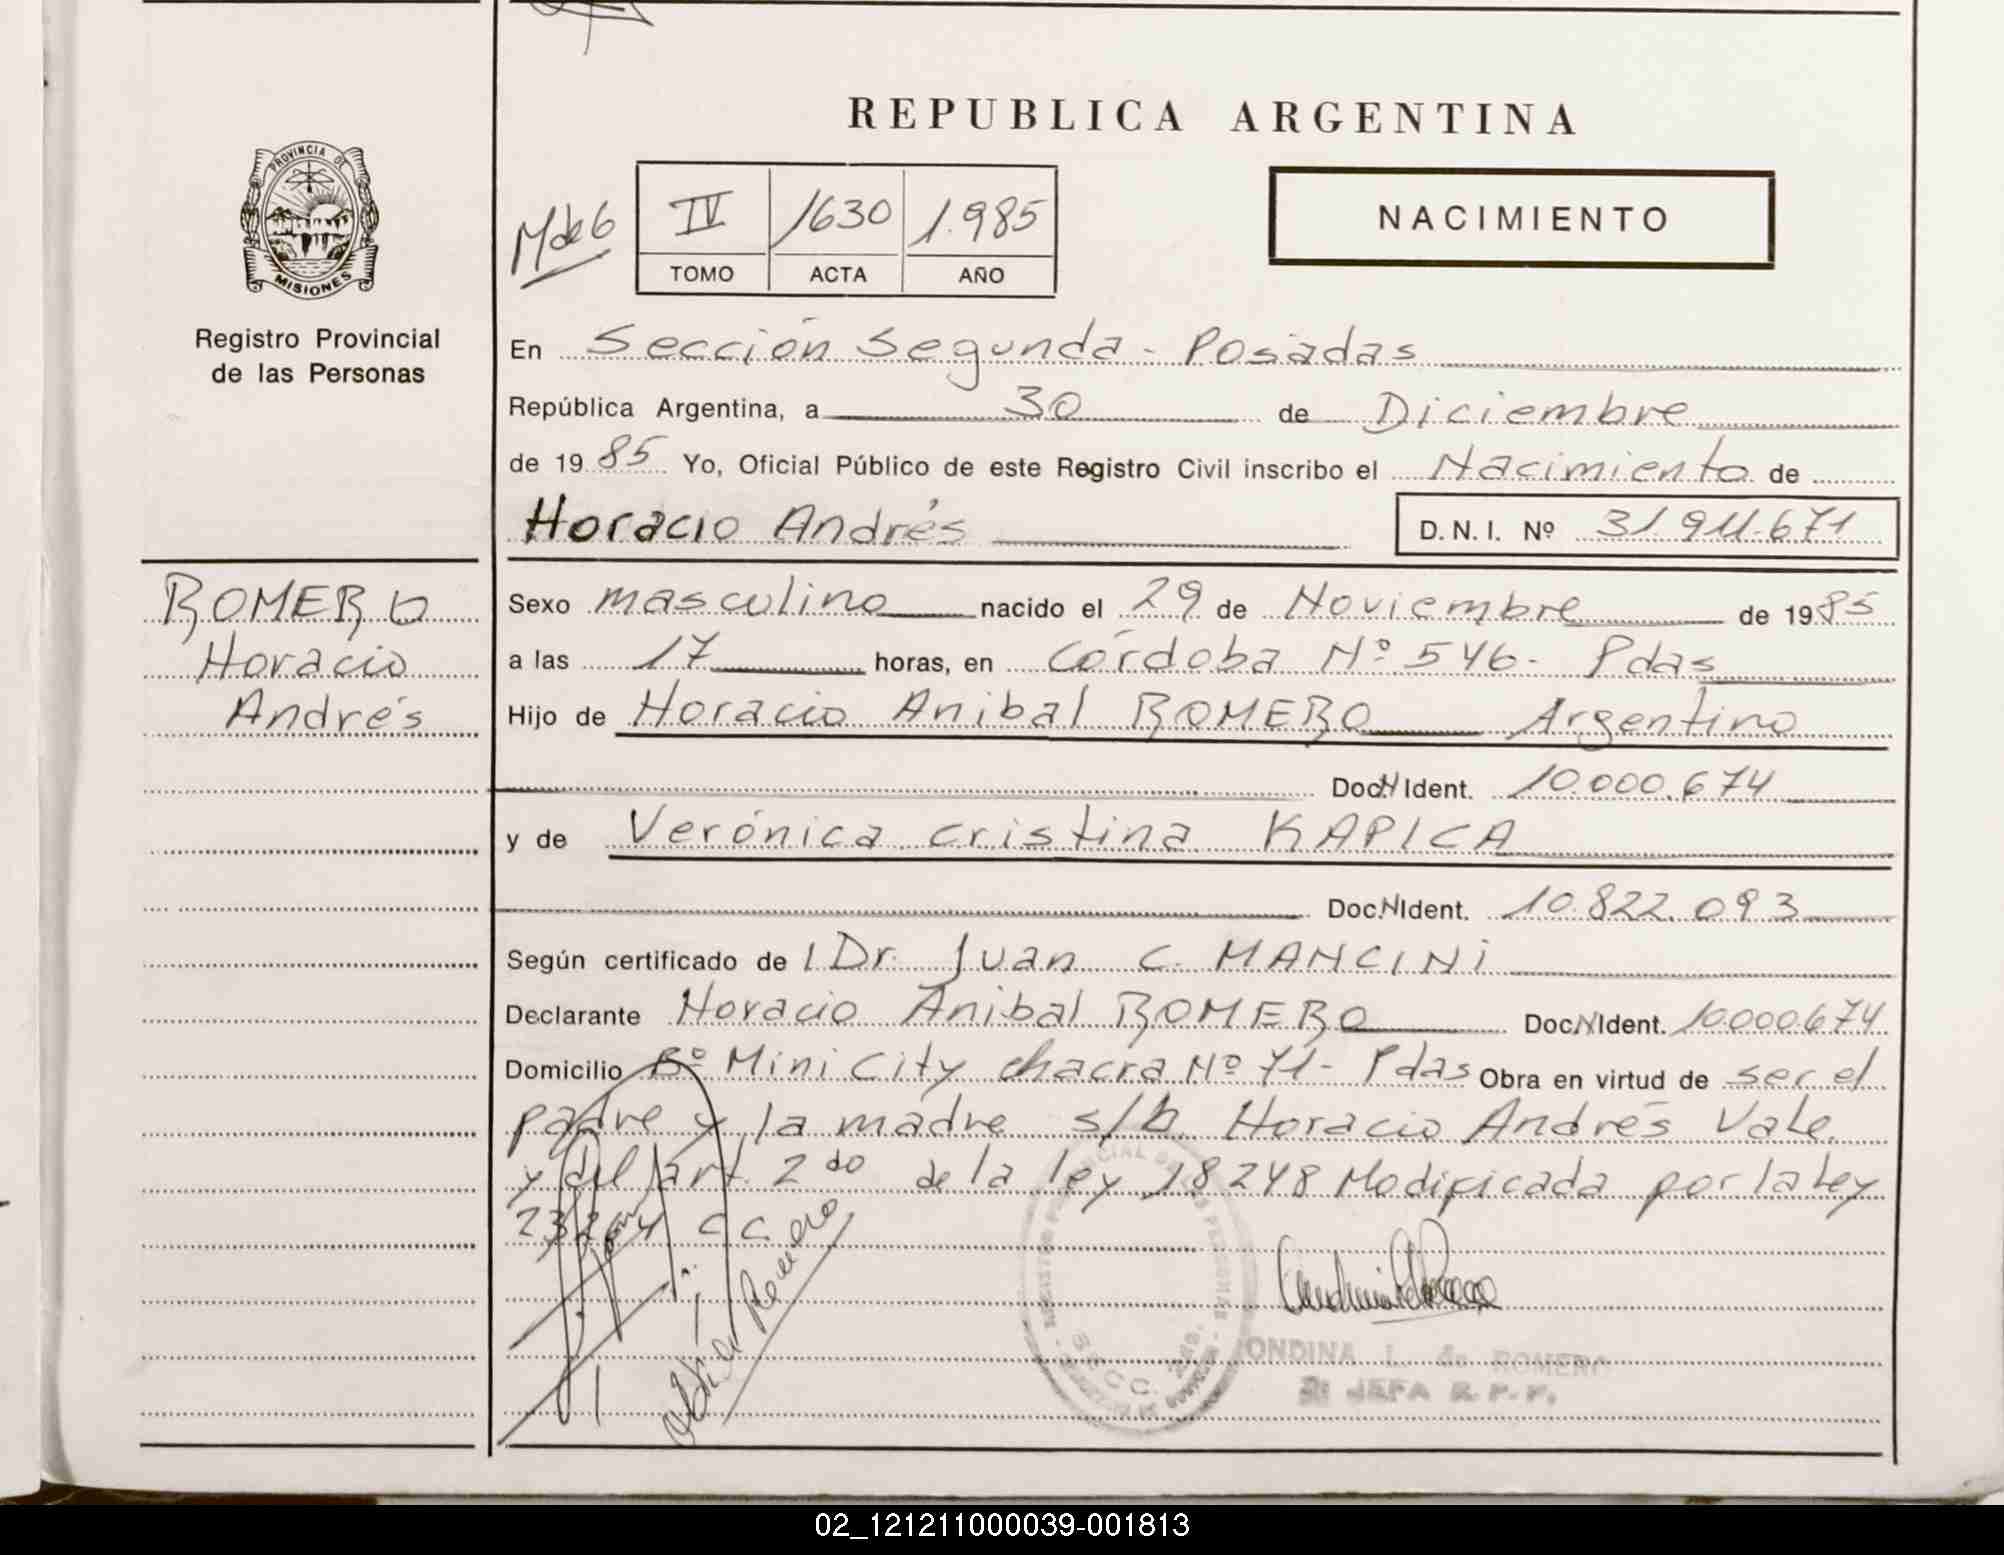 REPUBLICA ARGENTINA
PROVINCIA DE MISIONES
Registro Provincial
de las Personas
M de 6
IV 1630 1.985
TOMO ACTA AÑO
NACIMIENTO
En Sección Segunda - Posadas
República Argentina, a 30 de Diciembre
de 1985 Yo, Oficial Público de este Registro Civil inscribo el Nacimiento de
Horacio Andrés D.N.I. Nº 31.911.671
ROMERO
Horacio
Andrés
Sexo masculino nacido el 29 de Noviembre de 1985
a las 17 horas, en Córdoba Nº 546 - Pdas
Hijo de Horacio Anibal ROMERO Argentino
Doc.N Ident. 10.000.674
y de Verónica Cristina KAPICA
Doc.N Ident. 10.822.093
Según certificado de Dr. Juan C. MANCINI
Declarante Horacio Anibal ROMERO Doc.N Ident. 10000674
Domicilio Bº Mini City chacra Nº 71 - Pdas Obra en virtud de ser el
padre y la madre s/b Horacio Andrés Vale
y del art. 2do de la ley 18248 Modificada por la ley
23264 C C
ONDINA L. de ROMERO
JEFA R.P.P.
02_121211000039-001813